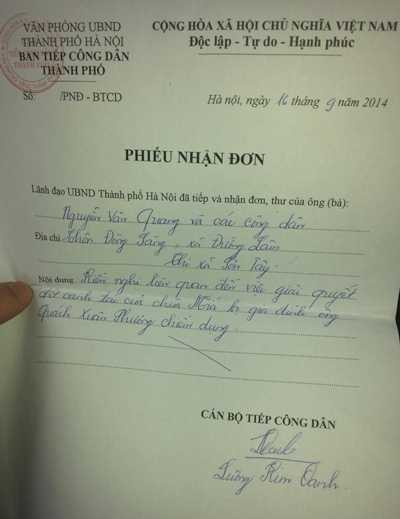 VĂN PHÒNG UBND
THÀNH PHỐ HÀ NỘI
BAN TIẾP CÔNG DÂN
THÀNH PHỐ
Số: /PNĐ - BTCD
CỘNG HÒA XÃ HỘI CHỦ NGHĨA VIỆT NAM
Độc lập - Tự do - Hạnh phúc
Hà nội, ngày 16 tháng 9 năm 2014
PHIẾU NHẬN ĐƠN
Lãnh đạo UBND Thành phố Hà Nội đã tiếp và nhận đơn, thư của ông (bà):
Nguyễn Văn Quang và các công dân
Địa chỉ thôn Đông Sàng, xã Đường Lâm
thị xã Sơn Tây
Nội dung Kiến nghị liên quan đến việc giải quyết
đất canh tác của chùa Mía gia đình ông
Quách Xuân Phương chiếm dụng
CÁN BỘ TIẾP CÔNG DÂN
Kim Oanh